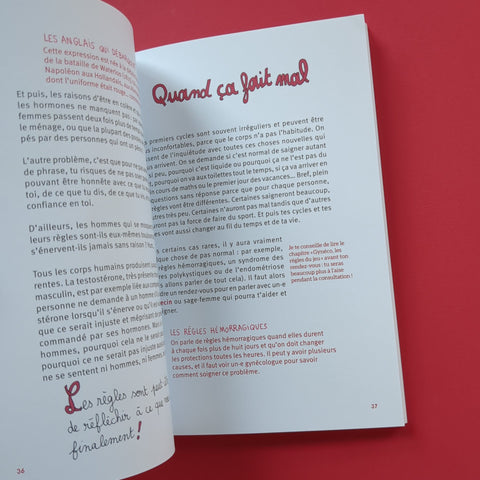 LES ANGLAIS QUI DÉBARQ
Cette expression est née à la
de la bataille de Waterloo
Napoléon aux Hollandais,
dont l'uniforme était rouge
Et puis, les raisons d'être en colère
les hormones ne manquent pas
femmes passent deux fois plus de
le ménage, ou que la plupart des
pés par des personnes qui ont un
L'autre problème, c'est que pour
de phrase, tu risques de ne pas
pouvant être honnête avec ce que
toi, de ce que tu dis, de ce que tu
confiance en toi.
D'ailleurs, les hommes qui se moquent
leurs règles sont-ils eux-mêmes
s'énervent-ils jamais sans raison ?
Tous les corps humains produisent
rentes. La testostérone, très présente
masculin, est par exemple liée aux
personne ne demande à un homme
stérone lorsqu'il s'énerve ou qu'il
que ce serait injuste et méprisant
commandé par ses hormones.
hommes, pourquoi cela ne le serait
pourquoi ce ne serait pas injuste
ne se sentent ni hommes, ni femmes
Les règles sont peut-être
de réfléchir à ce que
finalement !
36
Quand ça fait mal
s premiers cycles sont souvent irréguliers et peuvent être
inconfortables, parce que le corps n'a pas l'habitude. On
de l'inquiétude avec toutes ces choses nouvelles qui
On se demande si c'est normal de saigner autant
peu, pourquoi c'est liquide ou pourquoi ça ne l'est pas du
pourquoi on va aux toilettes tout le temps, si ça va arriver en
cours de maths ou le premier jour des vacances... Bref, plein
questions sans réponse parce que pour chaque personne,
différentes. Certaines saigneront beaucoup,
très peu. Certaines n'auront pas mal tandis que d'autres
pas la force de faire du sport. Et puis tes cycles et tes
vont aussi changer au fil du temps et de ta vie.
certains cas rares, il y aura vraiment
chose de pas normal : par exemple,
règles hémorragiques, un syndrome des
polykystiques ou de l'endométriose
allons parler de tout cela). Il faut alors
un rendez-vous pour en parler avec un·e
ou sage-femme qui pourra t'aider et
Je te conseille de lire le
chapitre « Gynéco, les
règles du jeu » avant ton
rendez-vous : tu seras
beaucoup plus à l'aise
pendant la consultation !
LES RÈGLES HÉMORRAGIQUES
On parle de règles hémorragiques quand elles durent
à chaque fois plus de huit jours et qu'on doit changer
les protections toutes les heures. Il peut y avoir plusieurs
causes, et il faut voir un·e gynécologue pour savoir
comment soigner ce problème.
37